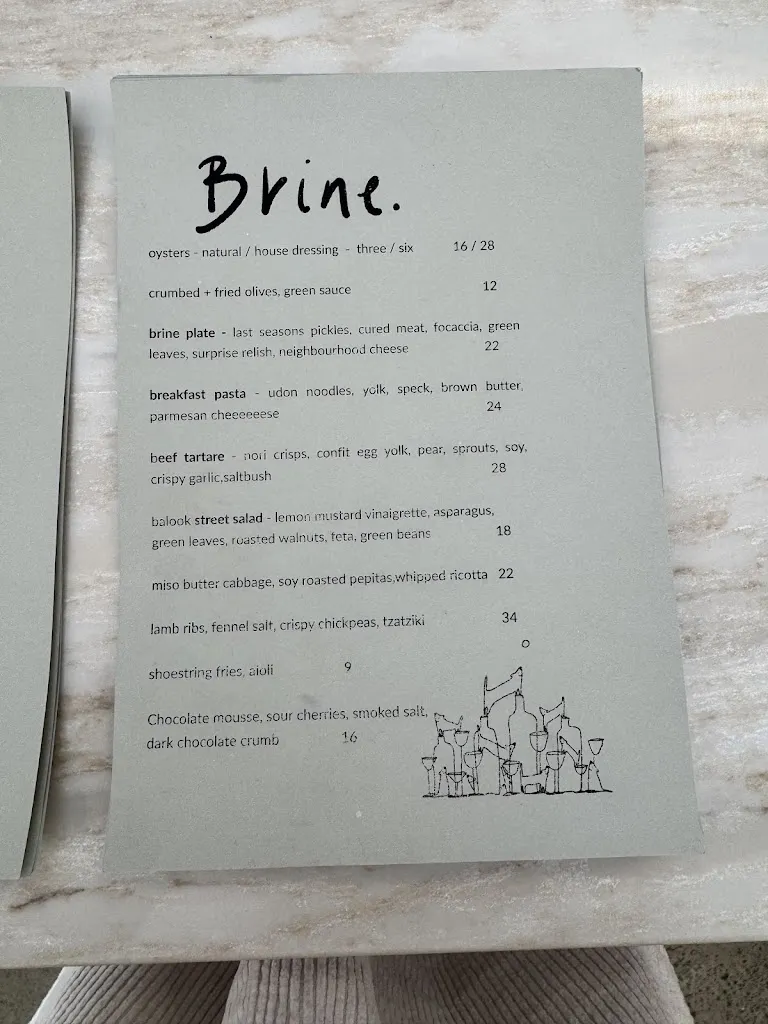 Brine.
oysters - natural / house dressing - three / six 16 / 28
crumbed + fried olives, green sauce 12
brine plate - last seasons pickles, cured meat, focaccia, green
leaves, surprise relish, neighbourhood cheese 22
breakfast pasta - udon noodles, yolk, speck, brown butter,
parmesan cheeeeeese 24
beef tartare - nori crisps, confit egg yolk, pear, sprouts, soy,
crispy garlic,saltbush 28
balook street salad - lemon mustard vinaigrette, asparagus,
green leaves, roasted walnuts, feta, green beans 18
miso butter cabbage, soy roasted pepitas,whipped ricotta 22
lamb ribs, fennel salt, crispy chickpeas, tzatziki 34
shoestring fries, aioli 9
Chocolate mousse, sour cherries, smoked salt,
dark chocolate crumb 16